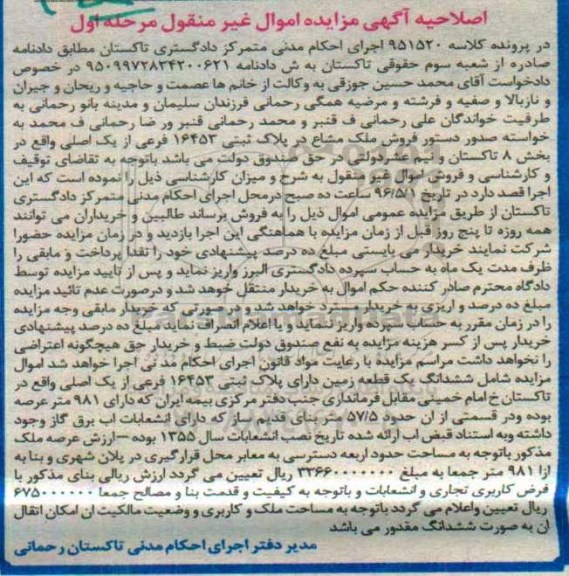 اصلاحیه آگهی مزایده اموال غیر منقول مرحله اول
در پرونده کلاسه ۹۵۱۵۲۰ اجرای احکام مدنی متمرکز دادگستری تاکستان مطابق دادنامه
صادره از شعبه سوم حقوقی تاکستان به ش دادنامه ۹۵۰۹۹۷۲۸۳۴۲۰۰۶۲۱ در خصوص
دادخواست آقای محمد حسین جوزقی به وکالت از خانم ها عصمت و حاجیه و ریحان و جیران
و نازبالا و صفیه و فرشته و مرضیه همگی رحمانی فرزندان سلیمان و مدینه بانو رحمانی به
طرفیت خواندگان علی رحمانی ف قنبر و محمد رحمانی قنبر ور ضا رحمانی ف محمد به
خواسته صدور دستور فروش ملک مشاع در پلاک ثبتی ۱۶۴۵۳ فرعی از یک اصلی واقع در
بخش ۸ تاکستان و نیم عشر دولتی در حق صندوق دولت می باشد باتوجه به تقاضای توقیف
و کارشناسی و فروش اموال غیر منقول به شرح و میزان کارشناسی ذیل را نموده است که این
اجرا قصد دارد در تاریخ ۹۶/۵/۱ ساعت ده صبح درمحل اجرای احکام مدنی متمرکز دادگستری
تاکستان از طریق مزایده عمومی اموال ذیل را به فروش برساند طالبین و خریداران می توانند
همه روزه تا پنج روز قبل از زمان مزایده با هماهنگی این اجرا بازدید و در زمان مزایده حضورا
شرکت نمایند خریدار می بایستی مبلغ ده درصد پیشنهادی خود را نقدا پرداخت و مابقی را
ظرف مدت یک ماه به حساب سپرده دادگستری البرز واریز نماید و پس از تایید مزایده توسط
دادگاه محترم صادر کننده حکم اموال به خریدار منتقل خواهد شد و درصورت عدم تائید مزایده
مبلغ ده درصد و اریزی به خریدار مسترد خواهد شد و در صورتی که خریدار مابقی وجه مزایده
را در زمان مقرر به حساب سپرده واریز ننماید و یا اعلام انصراف نماید مبلغ ده درصد پیشنهادی
خریدار پس از کسر هزینه مزایده به نفع صندوق دولت ضبط و خریدار حق هیچگونه اعتراضی
را نخواهد داشت مراسم مزایده با رعایت مواد قانون اجرای احکام مد نی اجرا خواهد شد اموال
مزایده شامل ششدانگ یک قطعه زمین دارای پلاک ثبتی ۱۶۴۵۳ فرعی از یک اصلی واقع در
تاکستان خ امام خمینی مقابل فرمانداری جنب دفتر مرکزی بیمه ایران که دارای ۹۸۱ متر عرصه
بوده ودر قسمتی از ان حدود ۵۷/۵ متر بنای قدیم ساز که دارای انشعابات اب برق گاز وجود
داشته وبه استناد قبض اب ارائه شده تاریخ نصب انشعابات سال ۱۳۵۵ بوده –ارزش عرصه ملک
مذکور باتوجه به مساحت حدود اربعه دسترسی به معابر محل قرارگیری در پلان شهری و بنا به
ازا ۹۸۱ متر جمعا به مبلغ ۳۳۶۶۰۰۰۰۰۰۰ ریال تعیین می گردد ارزش ریالی بنای مذکور با
فرض کاربری تجاری و انشعابات و باتوجه به کیفیت و قدمت بنا و مصالح جمعا ۶۷۵۰۰۰۰۰۰
ریال تعیین واعلام می گردد باتوجه به مساحت ملک و کاربری و وضعیت مالکیت ان امکان اتقال
ان به صورت ششدانگ مقدور می باشد
مدیر دفتر اجرای احکام مدنی تاکستان رحمانی